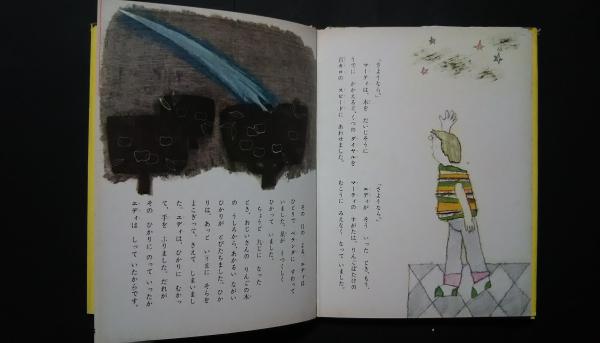 「さようなら。」
マーティは、木を だいじそうに
うでに かかえると、くつの ダイヤルを
百キロの スピードに あわせました。
「さようなら。」
エディが そう いった とき、もう、
マーティの すがたは、りんごばたけの
むこうに みえなく なって いました。
その 日の よる、エディは
ひとりで ベランダに すわって
いました。星が うつくしく
ひかって いました。
ちょうど 九じに なった
とき、おじいさんの りんごの木
の うしろから、あかるい ながい
ひかりが とびたちました。ひか
りは、あっと いうまに そらを
よこぎって、きえて しまいまし
た。エディは、ひかりに むかっ
て、手を ふりました。だれが
その ひかりに のって いったか
エディは しって いたからです。